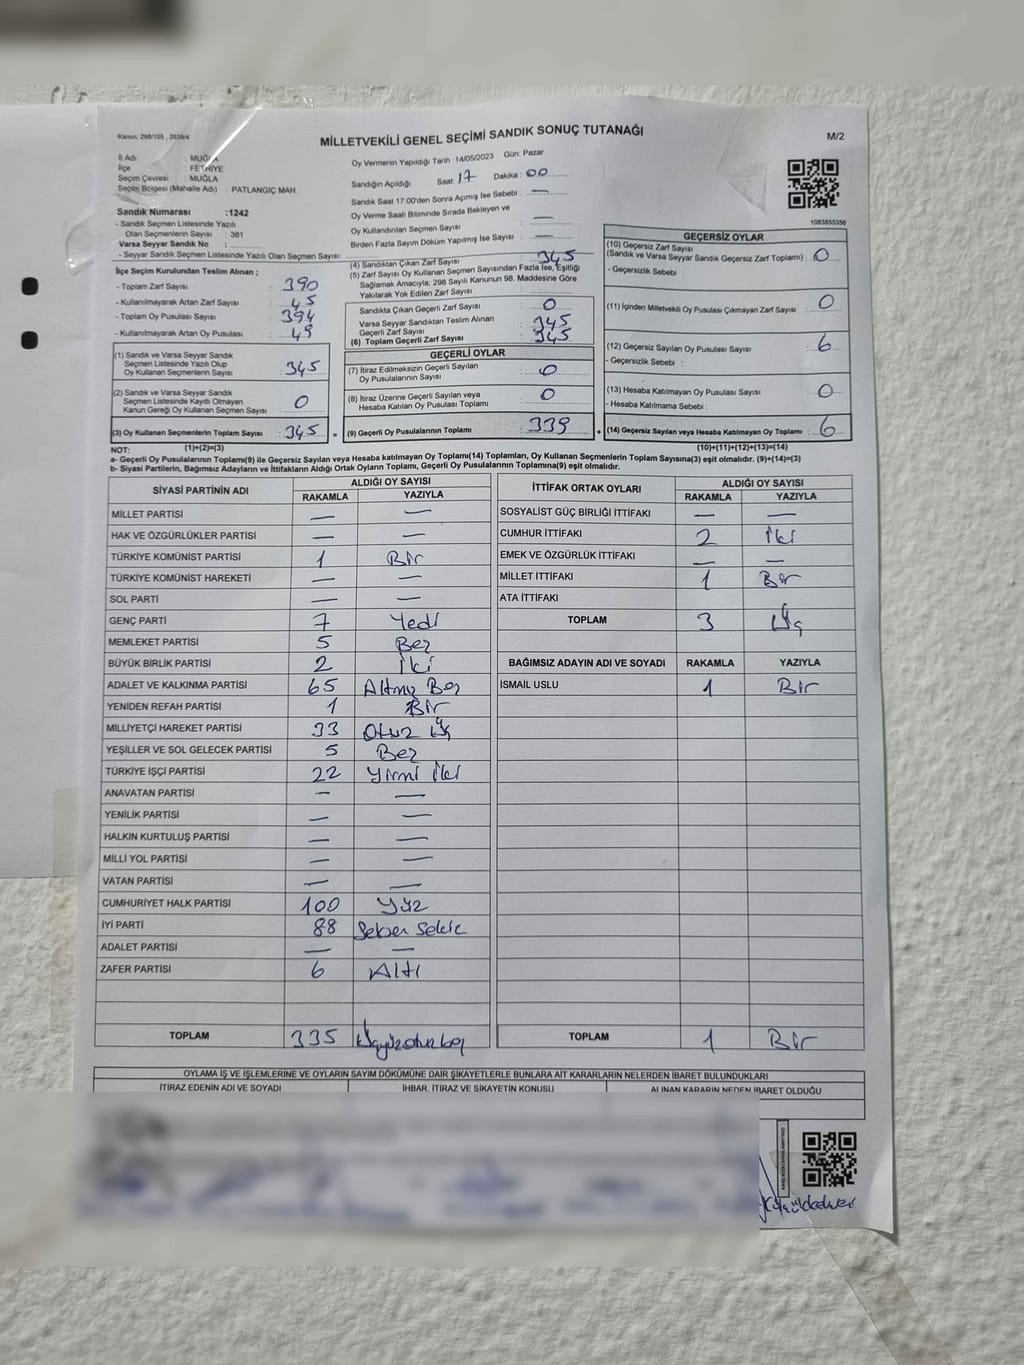 Kanun: 298/105, 2839/4
MİLLETVEKİLİ GENEL SEÇİMİ SANDIK SONUÇ TUTANAĞI
M/2
İl Adı : MUĞLA
İlçe : FETHİYE
Seçim Çevresi : MUĞLA
Seçim Bölgesi (Mahalle Adı) : PATLANGIÇ MAH
Sandık Numarası :1242
- Sandık Seçmen Listesinde Yazılı
Olan Seçmenlerin Sayısı : 381
Varsa Seyyar Sandık No :
- Seyyar Sandık Seçmen Listesinde Yazılı Olan Seçmen Sayısı :
Oy Vermenin Yapıldığı Tarih : 14/05/2023 Gün: Pazar
Sandığın Açıldığı Saat: 17 Dakika : 00
Sandık Saat 17:00'den Sonra Açımış İse Sebebi : —
Oy Verme Saati Bitiminde Sırada Bekleyen ve
Oy Kullandırılan Seçmen Sayısı : —
Birden Fazla Sayım Döküm Yapılmış İse Sayısı : —
1083855356
İlçe Seçim Kurulundan Teslim Alınan ;
- Toplam Zarf Sayısı : 390
- Kullanılmayarak Artan Zarf Sayısı : 45
- Toplam Oy Pusulası Sayısı : 394
- Kullanılmayarak Artan Oy Pusulası : 49
(1) Sandık ve Varsa Seyyar Sandık
Seçmen Listesinde Yazılı Olup
Oy Kullanan Seçmenlerin Sayısı : 345
(2) Sandık ve Varsa Seyyar Sandık
Seçmen Listesinde Kayıtlı Olmayan
Kanun Gereği Oy Kullanan Seçmen Sayısı : 0
(3) Oy Kullanan Seçmenlerin Toplam Sayısı : 345
(4) Sandıktan Çıkan Zarf Sayısı : 345
(5) Zarf Sayısı Oy Kullanan Seçmen Sayısından Fazla İse, Eşitliği
Sağlamak Amacıyla; 298 Sayılı Kanunun 98. Maddesine Göre
Yakılarak Yok Edilen Zarf Sayısı :
Sandıkta Çıkan Geçerli Zarf Sayısı : 0
Varsa Seyyar Sandıktan Teslim Alınan
Geçerli Zarf Sayısı : 345
(6) Toplam Geçerli Zarf Sayısı : 345
GEÇERLİ OYLAR
(7) İtiraz Edilmeksizin Geçerli Sayılan
Oy Pusulalarının Sayısı : 0
(8) İtiraz Üzerine Geçerli Sayılan veya
Hesaba Katılan Oy Pusulası Toplamı : 0
= (9) Geçerli Oy Pusulalarının Toplamı : 339
GEÇERSİZ OYLAR
(10) Geçersiz Zarf Sayısı
(Sandık ve Varsa Seyyar Sandık Geçersiz Zarf Toplamı) : 0
- Geçersizlik Sebebi :
(11) İçinden Milletvekili Oy Pusulası Çıkmayan Zarf Sayısı : 0
(12) Geçersiz Sayılan Oy Pusulası Sayısı : 6
- Geçersizlik Sebebi :
(13) Hesaba Katılmayan Oy Pusulası Sayısı : 0
- Hesaba Katılmama Sebebi :
+ (14) Geçersiz Sayılan veya Hesaba Katılmayan Oy Toplamı : 6
NOT: (1)+(2)=(3) (10)+(11)+(12)+(13)=(14)
a- Geçerli Oy Pusulalarının Toplamı(9) ile Geçersiz Sayılan veya Hesaba Katılmayan Oy Toplamı(14) Toplamları, Oy Kullanan Seçmenlerin Toplam Sayısına(3) eşit olmalıdır. (9)+(14)=(3)
b- Siyasi Partilerin, Bağımsız Adayların ve İttifakların Aldığı Ortak Oyların Toplamı, Geçerli Oy Pusulalarının Toplamına(9) eşit olmalıdır.
SİYASİ PARTİNİN ADI ALDIĞI OY SAYISI
RAKAMLA YAZIYLA
MİLLET PARTİSİ — —
HAK VE ÖZGÜRLÜKLER PARTİSİ — —
TÜRKİYE KOMÜNİST PARTİSİ 1 Bir
TÜRKİYE KOMÜNİST HAREKETİ — —
SOL PARTİ — —
GENÇ PARTİ 7 Yedi
MEMLEKET PARTİSİ 5 Beş
BÜYÜK BİRLİK PARTİSİ 2 İki
ADALET VE KALKINMA PARTİSİ 65 Altmış Beş
YENİDEN REFAH PARTİSİ 1 Bir
MİLLİYETÇİ HAREKET PARTİSİ 33 Otuz Üç
YEŞİLLER VE SOL GELECEK PARTİSİ 5 Beş
TÜRKİYE İŞÇİ PARTİSİ 22 Yirmi İki
ANAVATAN PARTİSİ — —
YENİLİK PARTİSİ — —
HALKIN KURTULUŞ PARTİSİ — —
MİLLİ YOL PARTİSİ — —
VATAN PARTİSİ — —
CUMHURİYET HALK PARTİSİ 100 Yüz
İYİ PARTİ 88 Seksen Sekiz
ADALET PARTİSİ — —
ZAFER PARTİSİ 6 Altı
TOPLAM 335 Üçyüzotuzbeş
İTTİFAK ORTAK OYLARI ALDIĞI OY SAYISI
RAKAMLA YAZIYLA
SOSYALİST GÜÇ BİRLİĞİ İTTİFAKI — —
CUMHUR İTTİFAKI 2 İki
EMEK VE ÖZGÜRLÜK İTTİFAKI — —
MİLLET İTTİFAKI 1 Bir
ATA İTTİFAKI
TOPLAM 3 Üç
BAĞIMSIZ ADAYIN ADI VE SOYADI RAKAMLA YAZIYLA
İSMAİL USLU 1 Bir
TOPLAM 1 Bir
OYLAMA İŞ VE İŞLEMLERİNE VE OYLARIN SAYIM DÖKÜMÜNE DAİR ŞİKAYETLERLE BUNLARA AİT KARARLARIN NELERDEN İBARET BULUNDUKLARI
İTİRAZ EDENİN ADI VE SOYADI İHBAR, İTİRAZ VE ŞİKAYETİN KONUSU ALINAN KARARIN NEDEN İBARET OLDUĞU